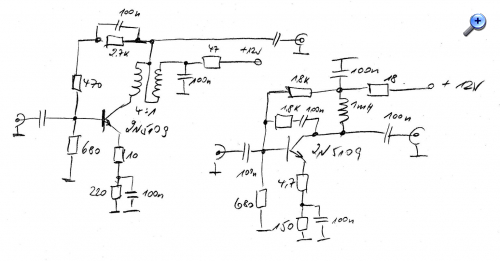 100n
2.7K
47
+12V
470
100n
4:1
2N5109
680
10
220
100n
100n
1.8K
18
+ 12V
1mH
1.8K 100n
100n
2N5109
10n
4.7
680
150
100n